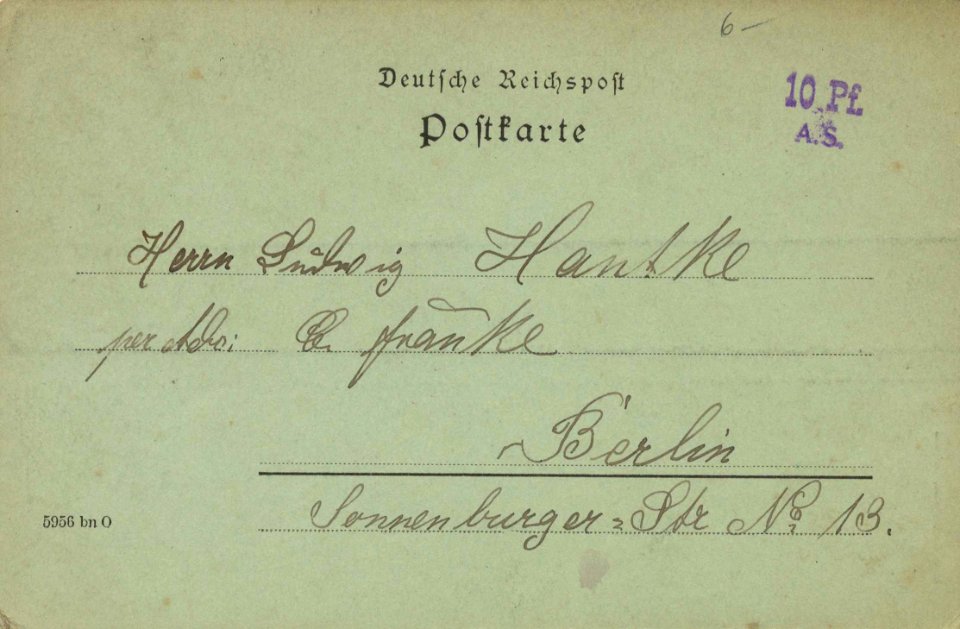 6-
Deutsche Reichspost
Postkarte
10 Pf.
A.S.
Herrn Ludwig Hantke
per Adr: C. Franke
Berlin
5956 bn O
Sonnenburger=Str No 13.